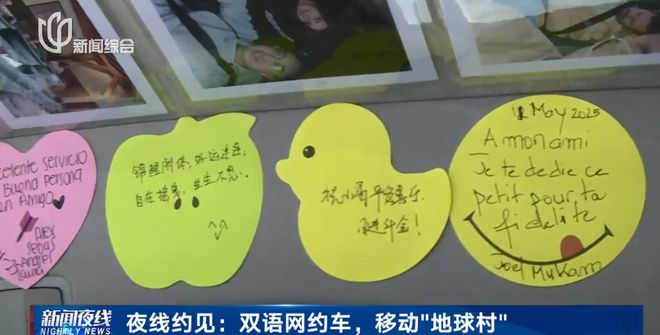 新闻综合
excelente servicio
Buena Persona
en Amigo
Alex
锦鲤附体，好运连连，
自在摇曳，生生不息。
祝小哥平安喜乐
日进斗金！
12 May 2025
A mon ami
Je te dedie ce
petit pour ta
fidelite
Joel Mukam
新闻夜线
NIGHTLY NEWS
夜线约见：双语网约车，移动"地球村"